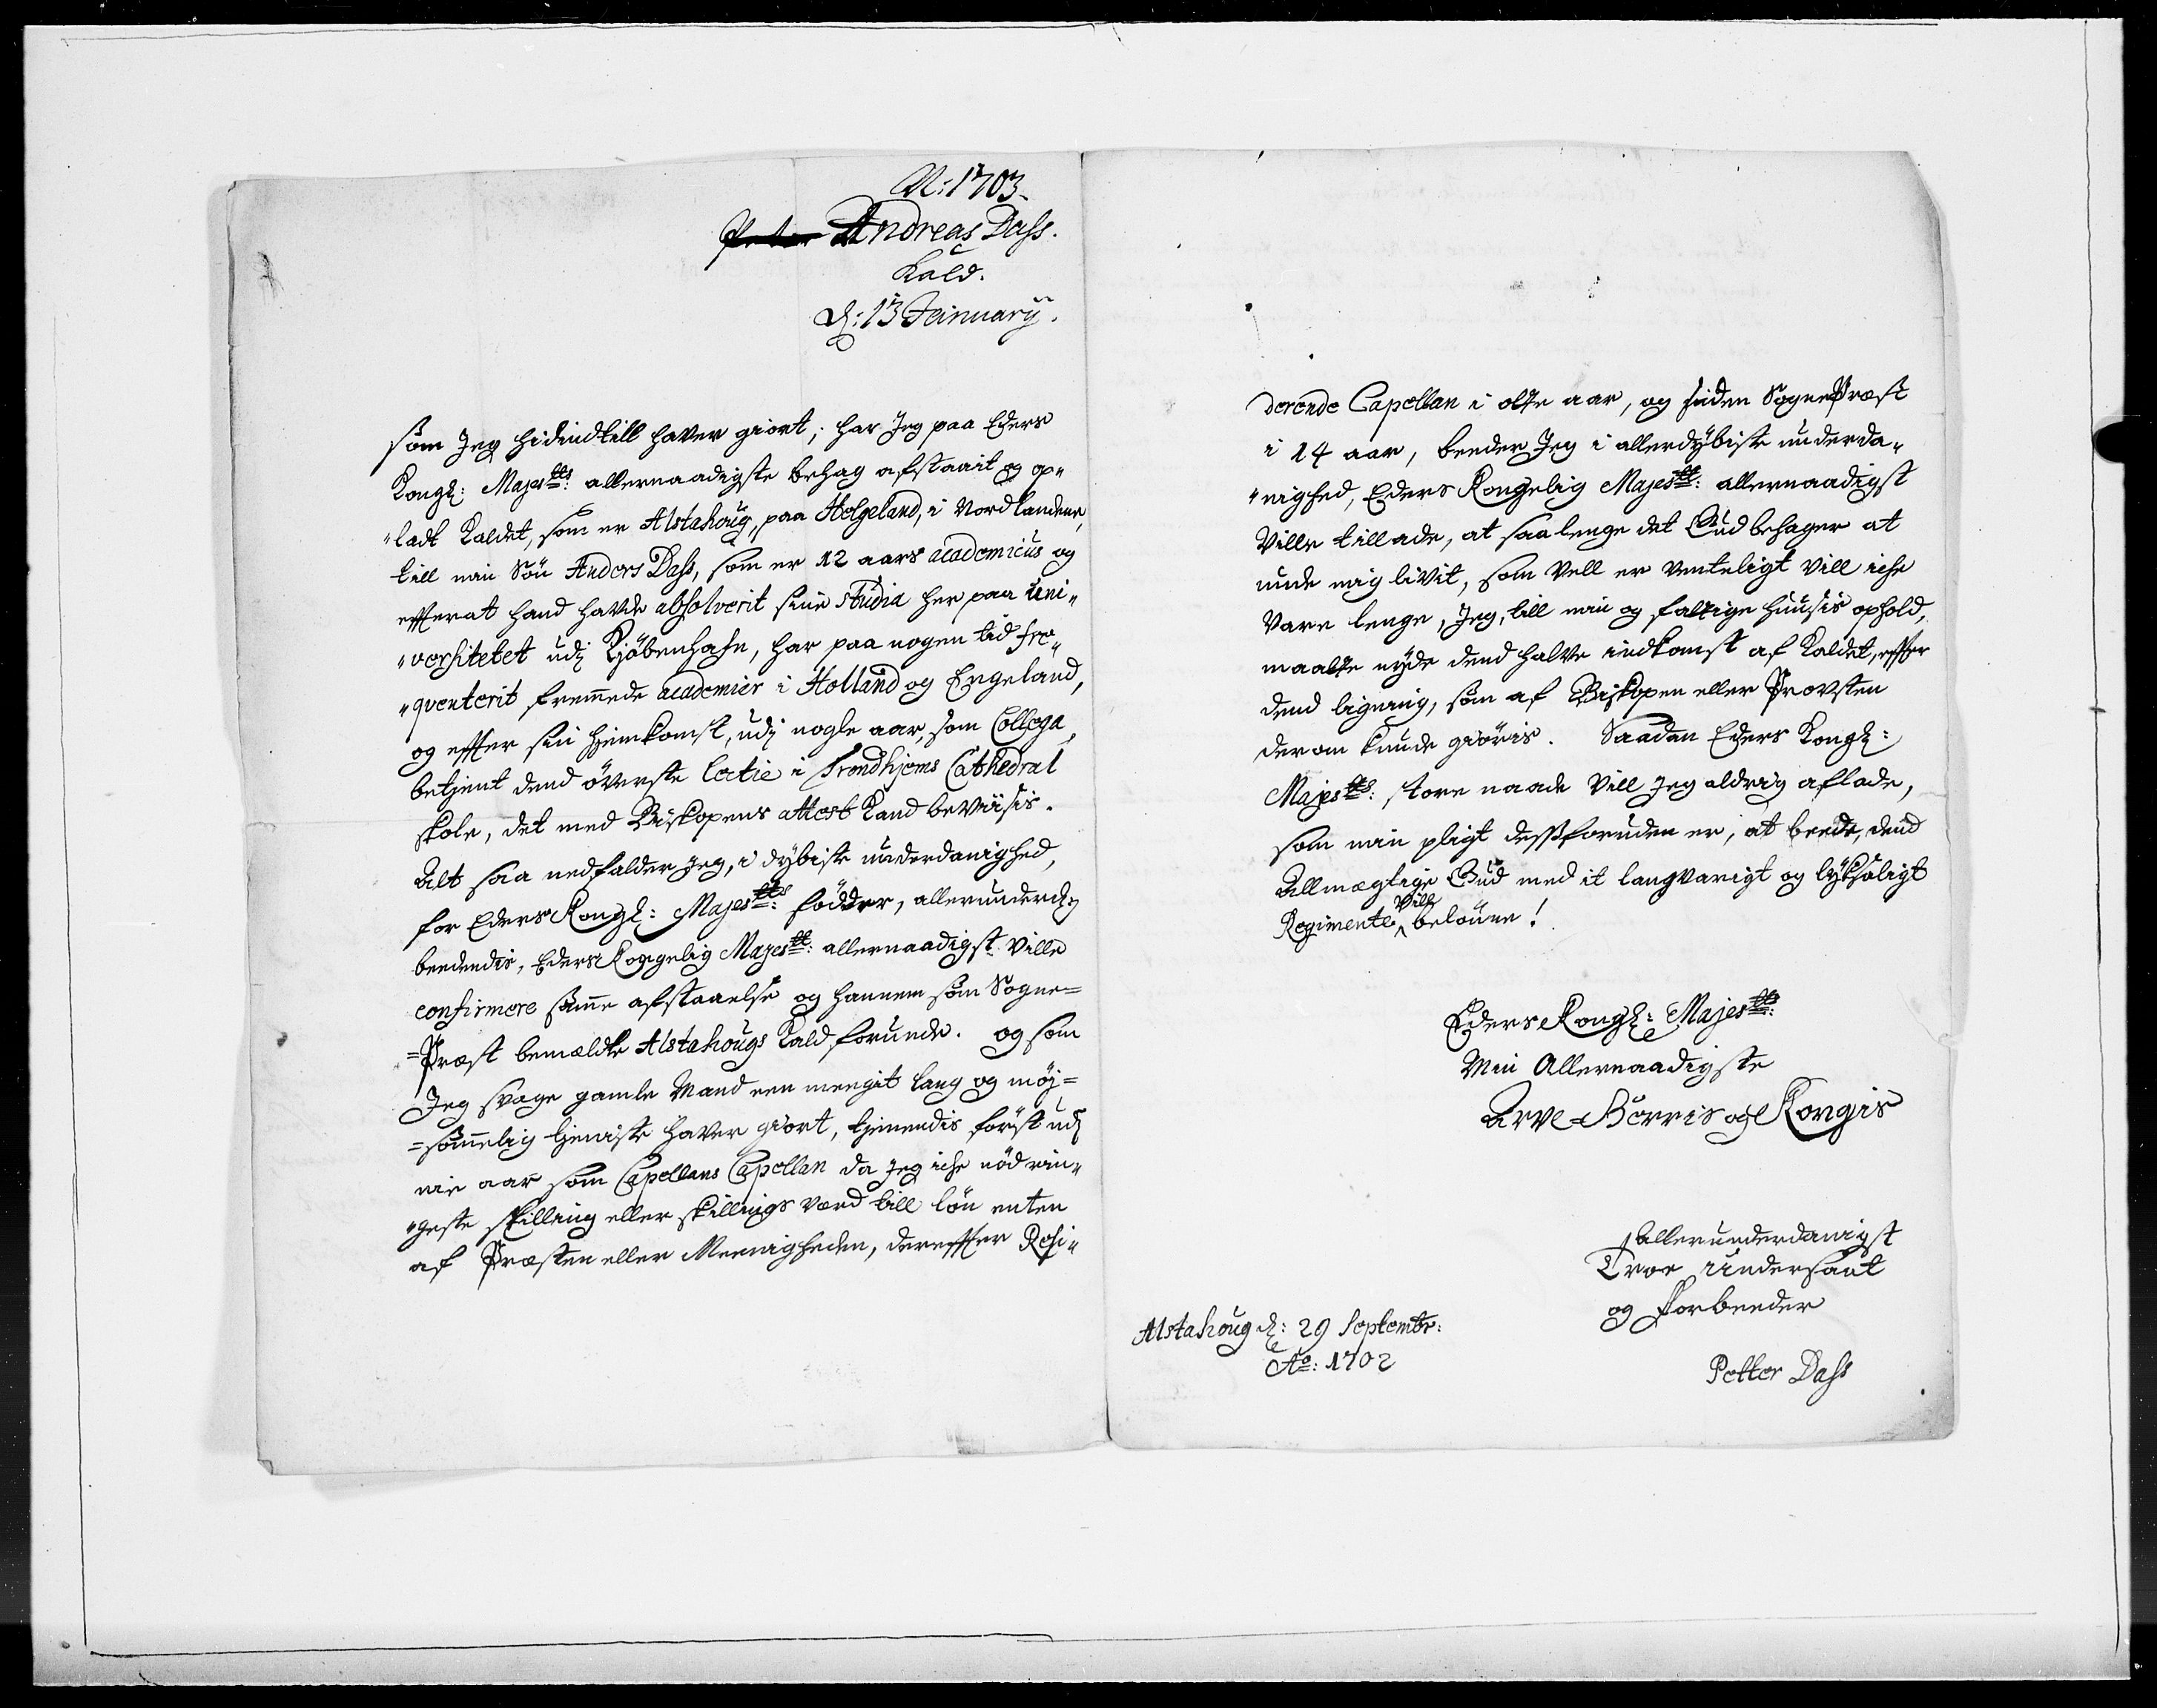 A: 1703.
Peter Andreas Dass.
Kald.
d: 13 Januarij.
som Jeg hidindtill haver giort; har Jeg paa Eders
Kongl: Majestts: allernaadigste behag afstaait og op„
„ladt Kaldet, som er Alstahoug, paa Helgeland, i Nordlandene,
till min Sön Anders Dass, som er 12 aars academicus og
efterat hand havde absolverit sine studia her paa Uni„
„versitetet udj Kjöbenhafn, har paa nogen tid fre„
„qventerit fremmede academier i Holland og Engeland,
og efter sin Hiemkomst, udj nogle aar, som Collega,
betjent dend överste lectie i Trondhjems Cathedral
skole, det med Biskopens attest Kand beviisis.
Alt saa nedfalder Jeg, i dybiste underdanighed,
for Eders Kongl: Majestts: födder, allerunderdgst
beedendis, Eders Kongelig Majestt: allernaadigst ville
confirmere samme afstaaelse og hannem som Sogne=
=Præst bemældte Alstahougs Kald forunde. og som
Jeg svage gamle Mand een meegit lang og möj=
=sommelig tjeniste haver giort, tjenendis först udj
nie aar som Capellans Capellan da Jeg iche nöd rin„
„geste skilling eller skillings værd till lön enten
af Præsten eller Meenigheden, derefter Resi„
derende Capellan i otte aar, og siden SognePræst
i 14 aar, beeder Jeg i allerdybiste underda„
„nighed, Eders Kongelig Majestt: allernaadigst
Ville tillade, at saa lenge det Gud behager at
unde mig livit, som vell er venteligt vill iche
vare lenge, Jeg, till min og fattige huusis ophold,
maatte nyde dend halve indkomst af Kaldet, efter
dend ligning, som af Biskopen eller Provsten
derom kunde giöris. Saadan Eders Kongl:
Majestts: store naade vill Jeg aldrig aflade,
som min pligt dessforuden er, at beede, dend
Allmægtige Gud med it langvarigt og lyksaligt
Regimente vill belönne!
Eders Kongl: Majestts:
Min Allernaadigste
Arve-Herris og Kongis
allerunderdanigst
Troe Undersaat
og Forbeeder
Petter Dass
Alstahoug d: 29 Septembr:
Ao: 1702